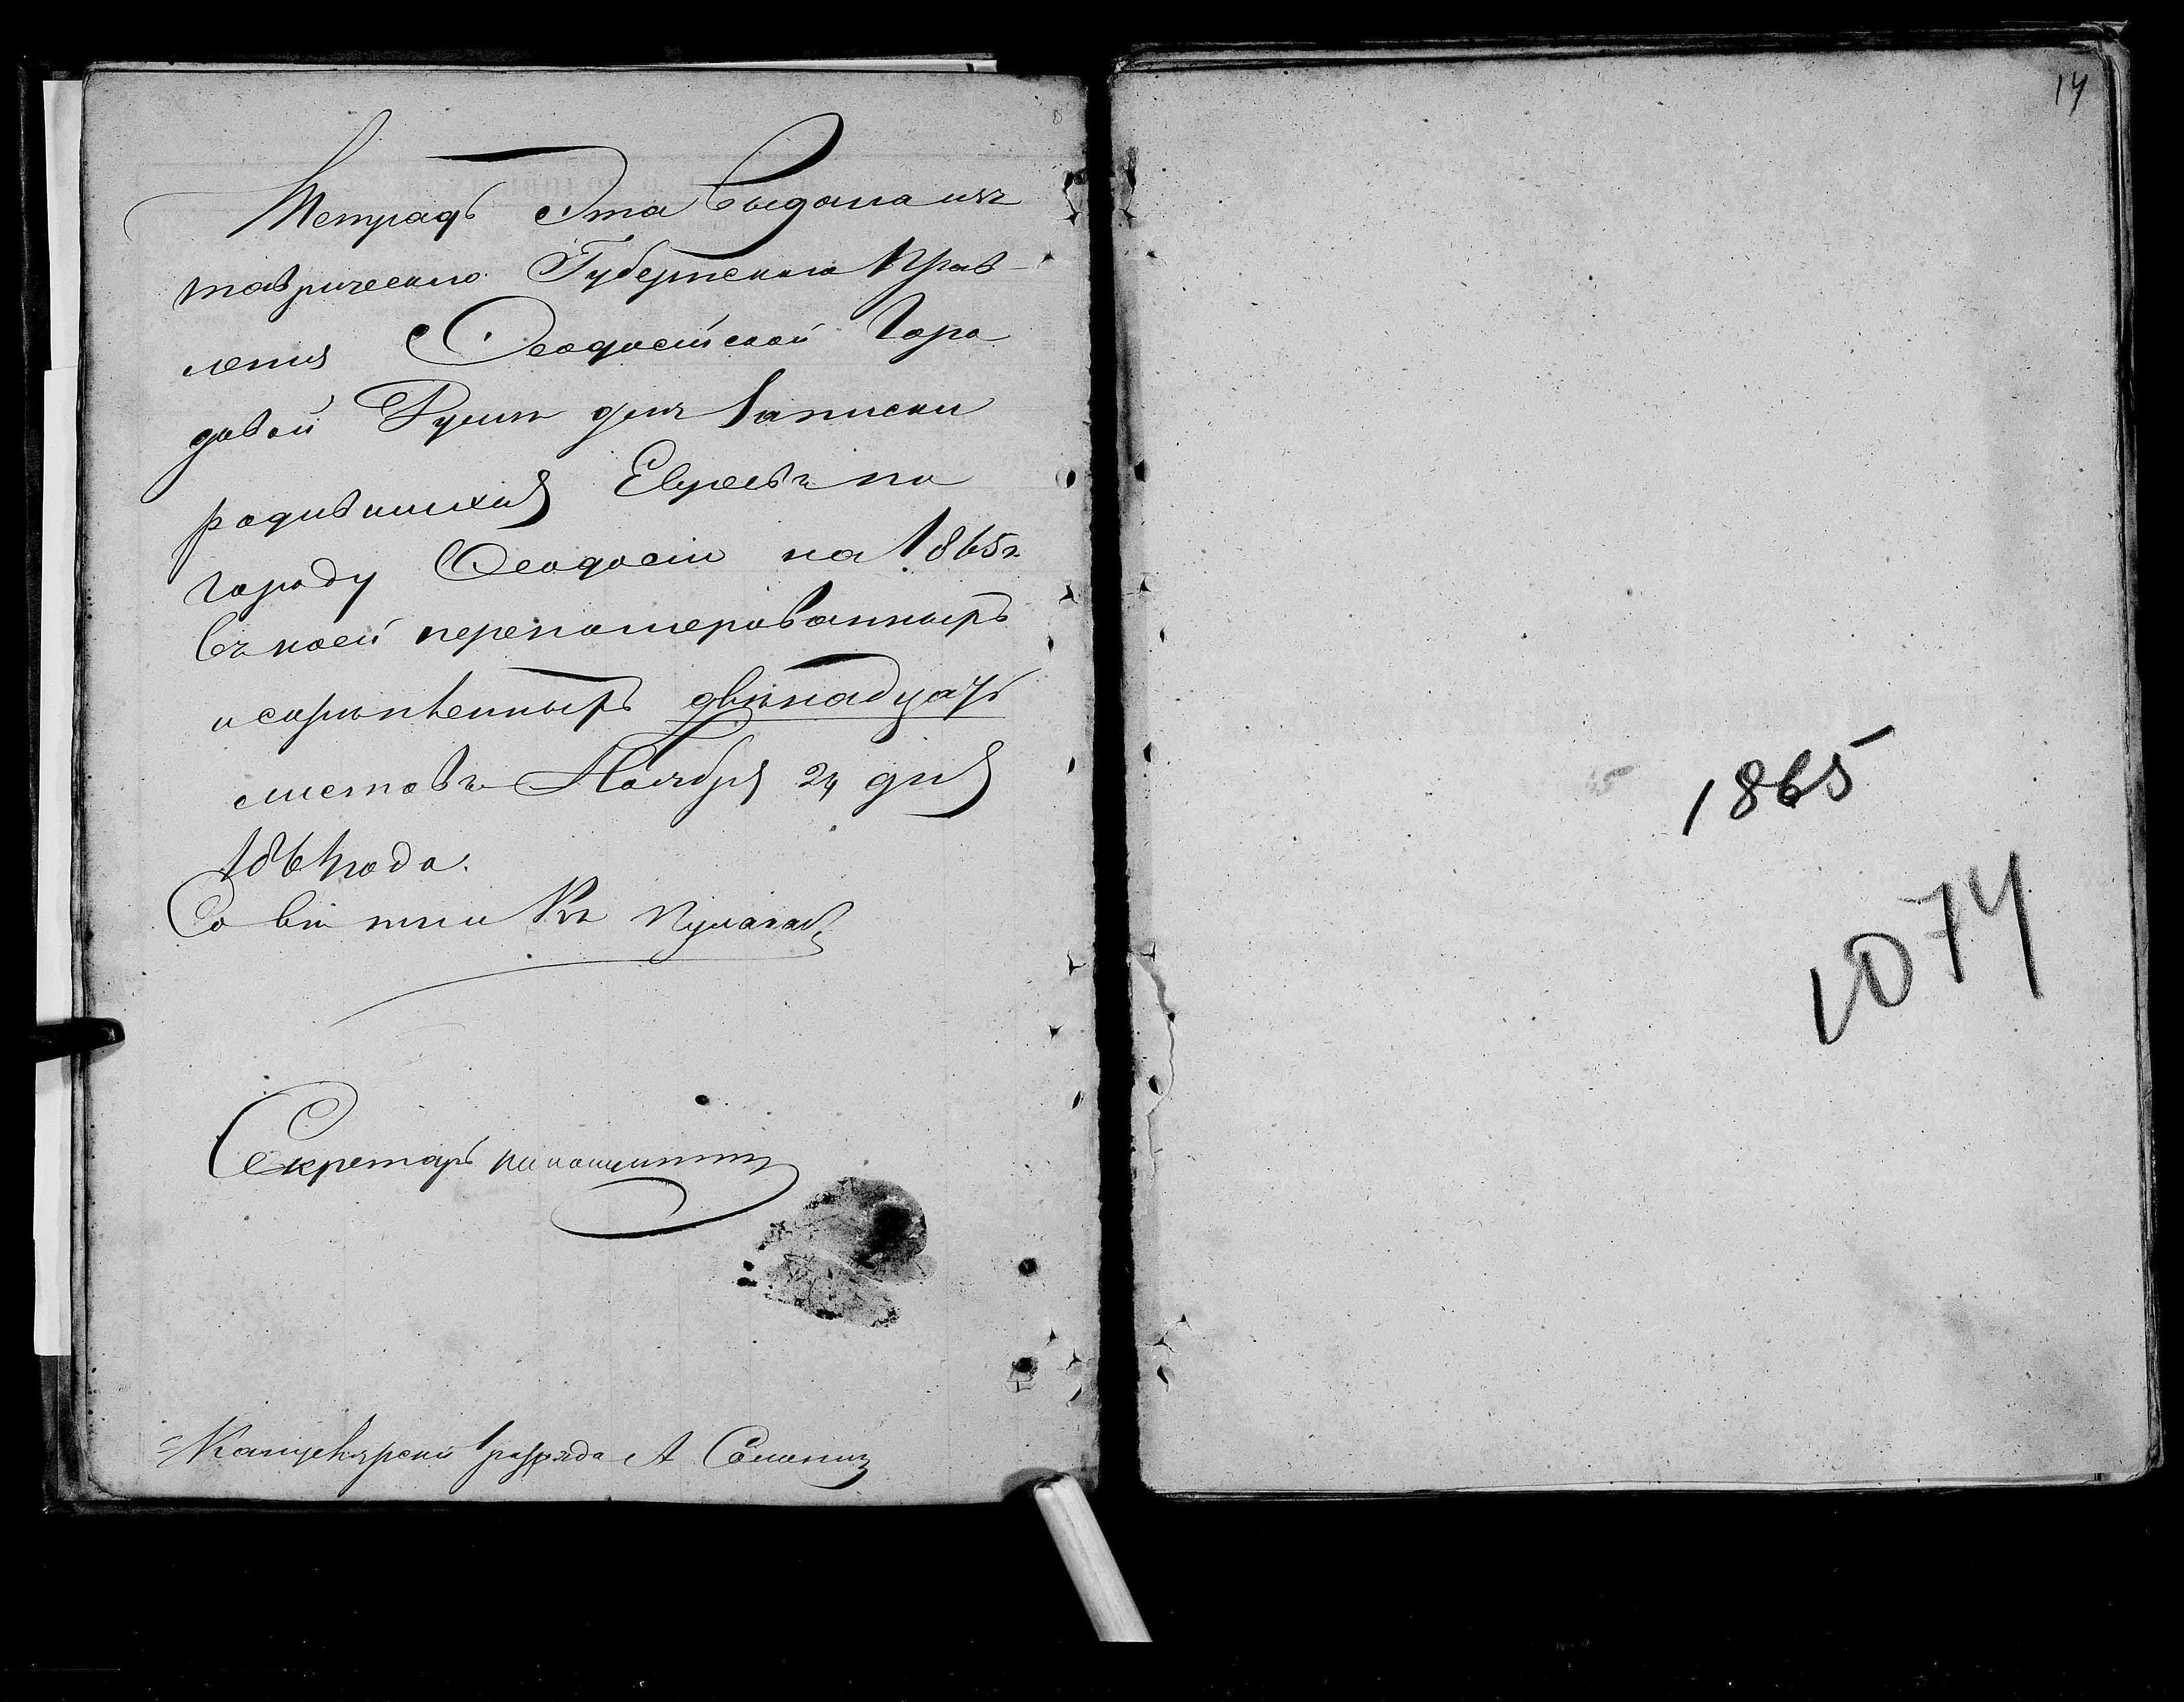 Тетрадь Эта Выдана изъ
таврическаго Губернскаго Прав-
ленія Ѳеодосійской Горо
довой Думѣ для Записки
родившихся Евреевъ по
городу Ѳеодосіи на 1865 г.
Въ коей перенумерованныхъ
и скрѣпленныхъ двѣнадцать
листовъ Ноября 24 дня
1864 года.
Совѣтникъ
Секретарь
Канцелярскій 1 разряда А
17
1865
1074